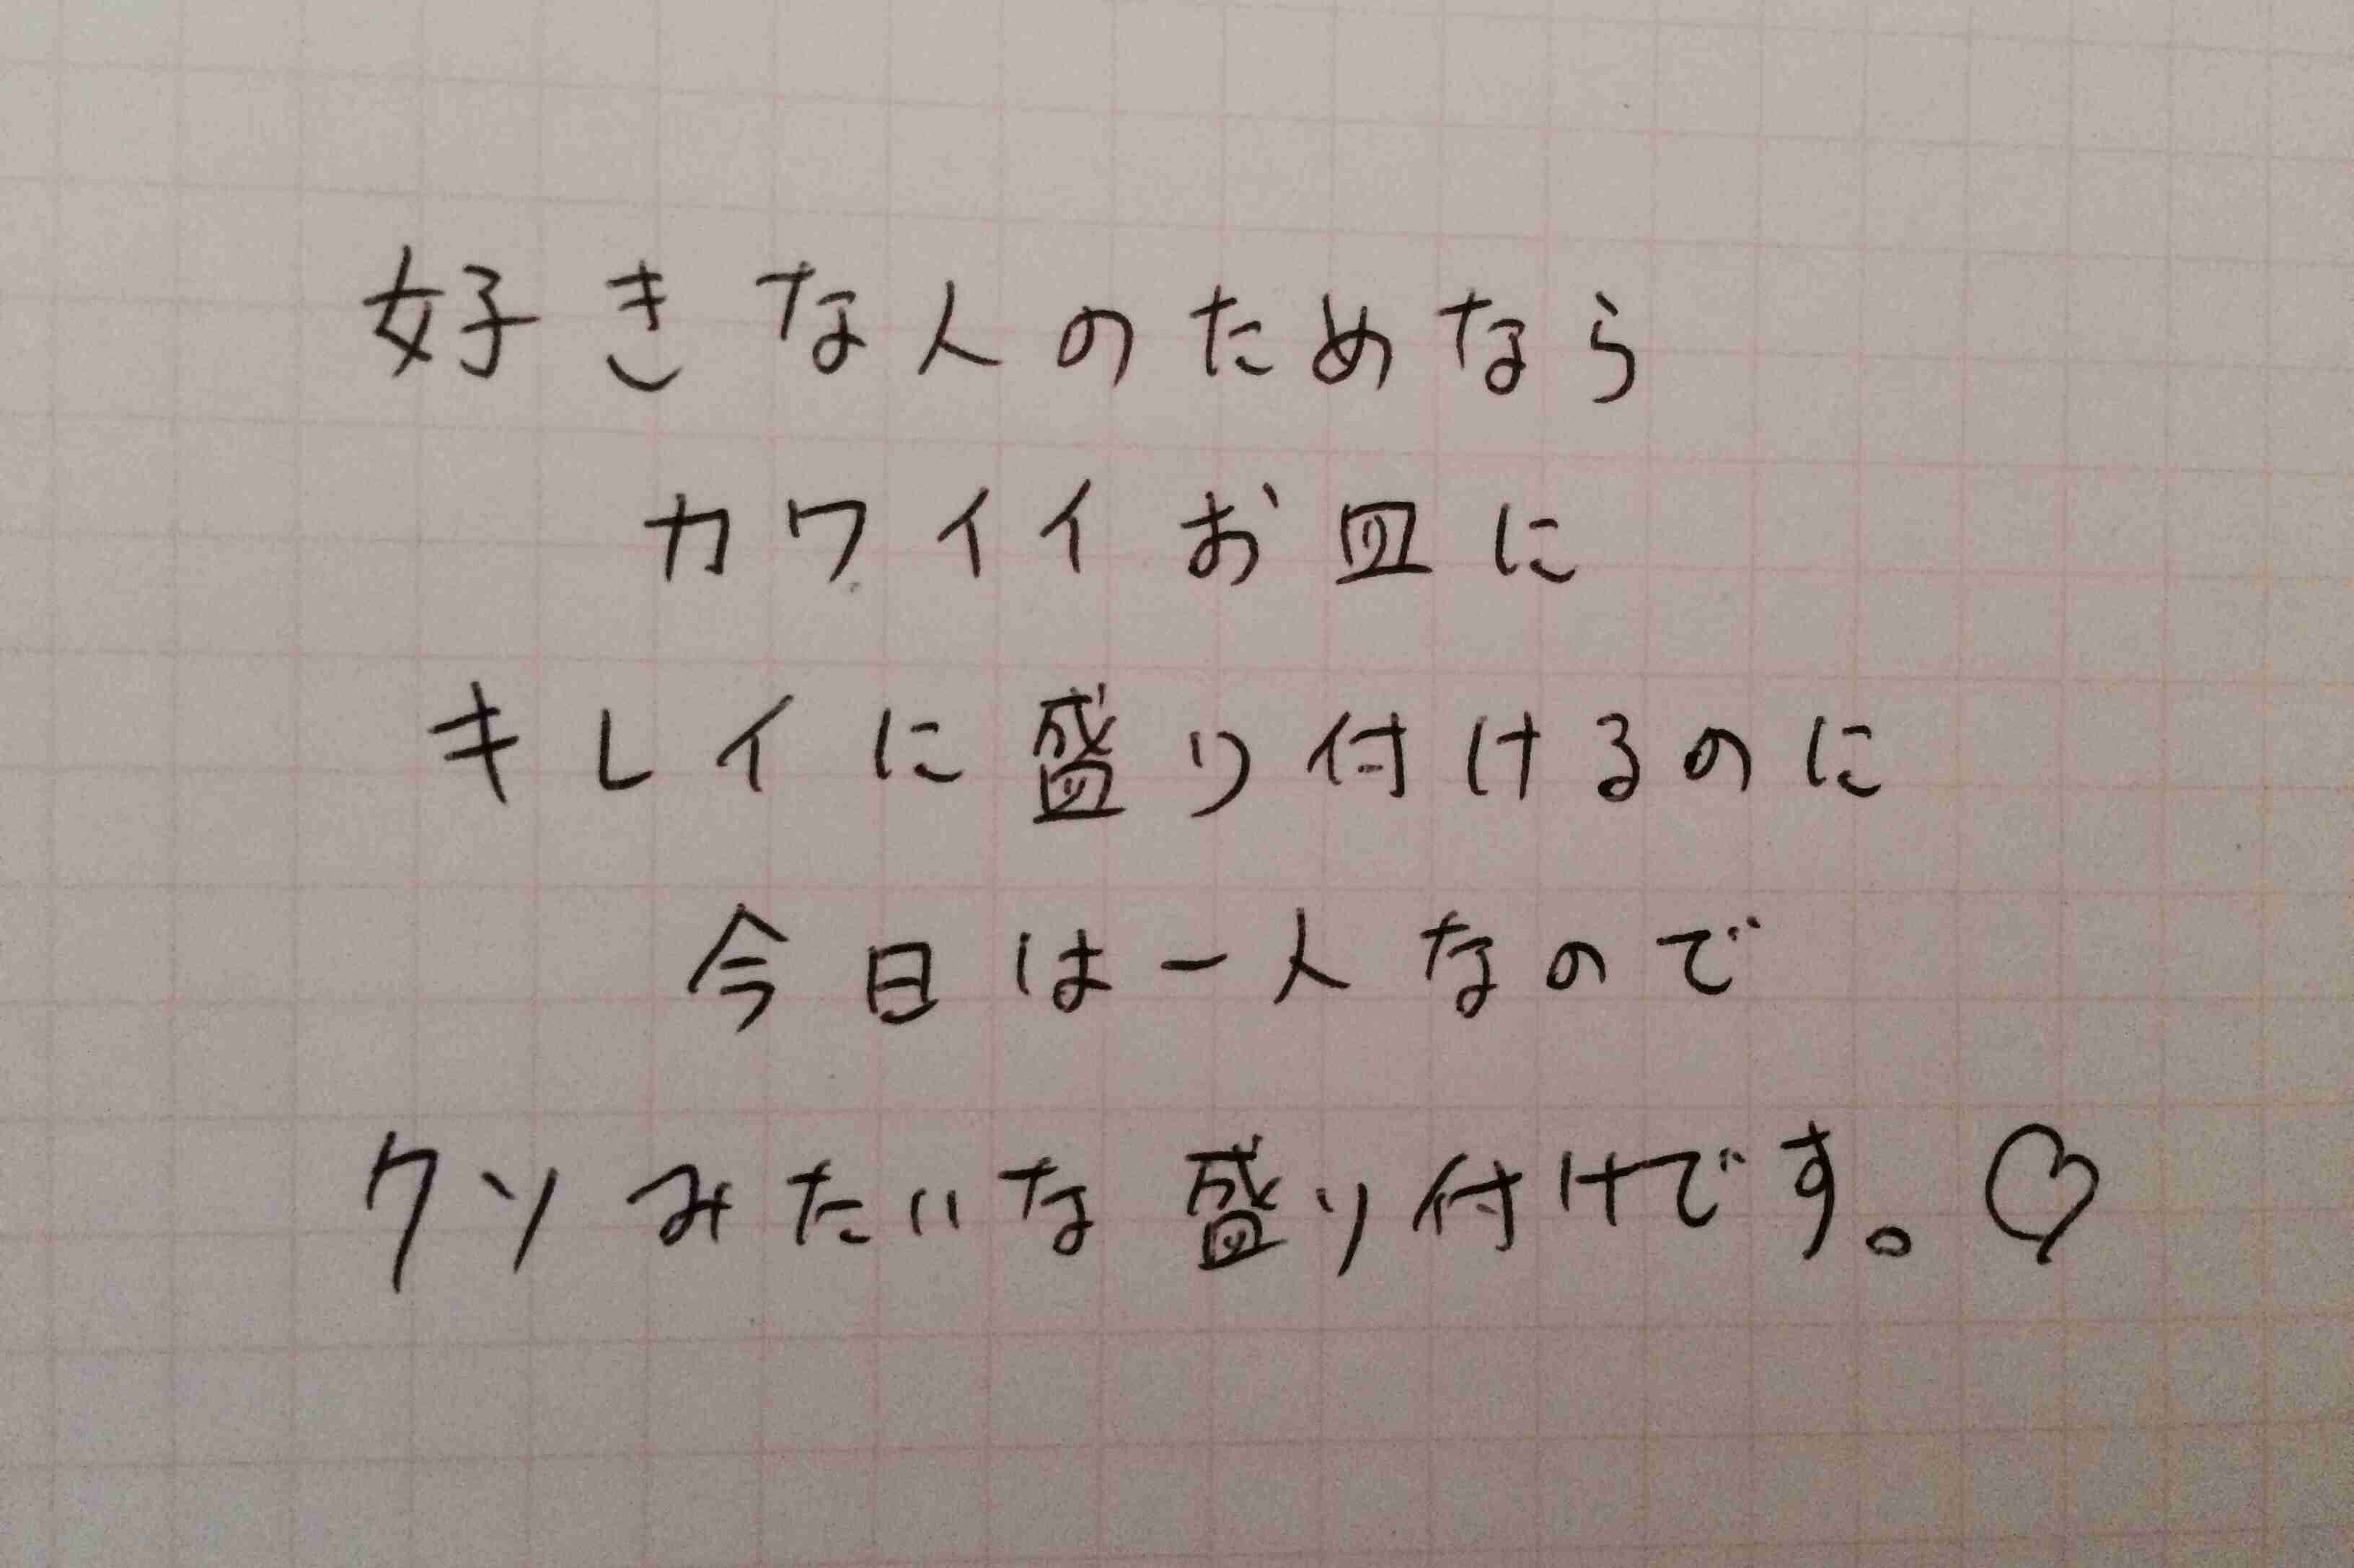 好きな人のためなら
カワイイお皿に
キレイに盛り付けるのに
今日は一人なので
クソみたいな盛り付けです。♡